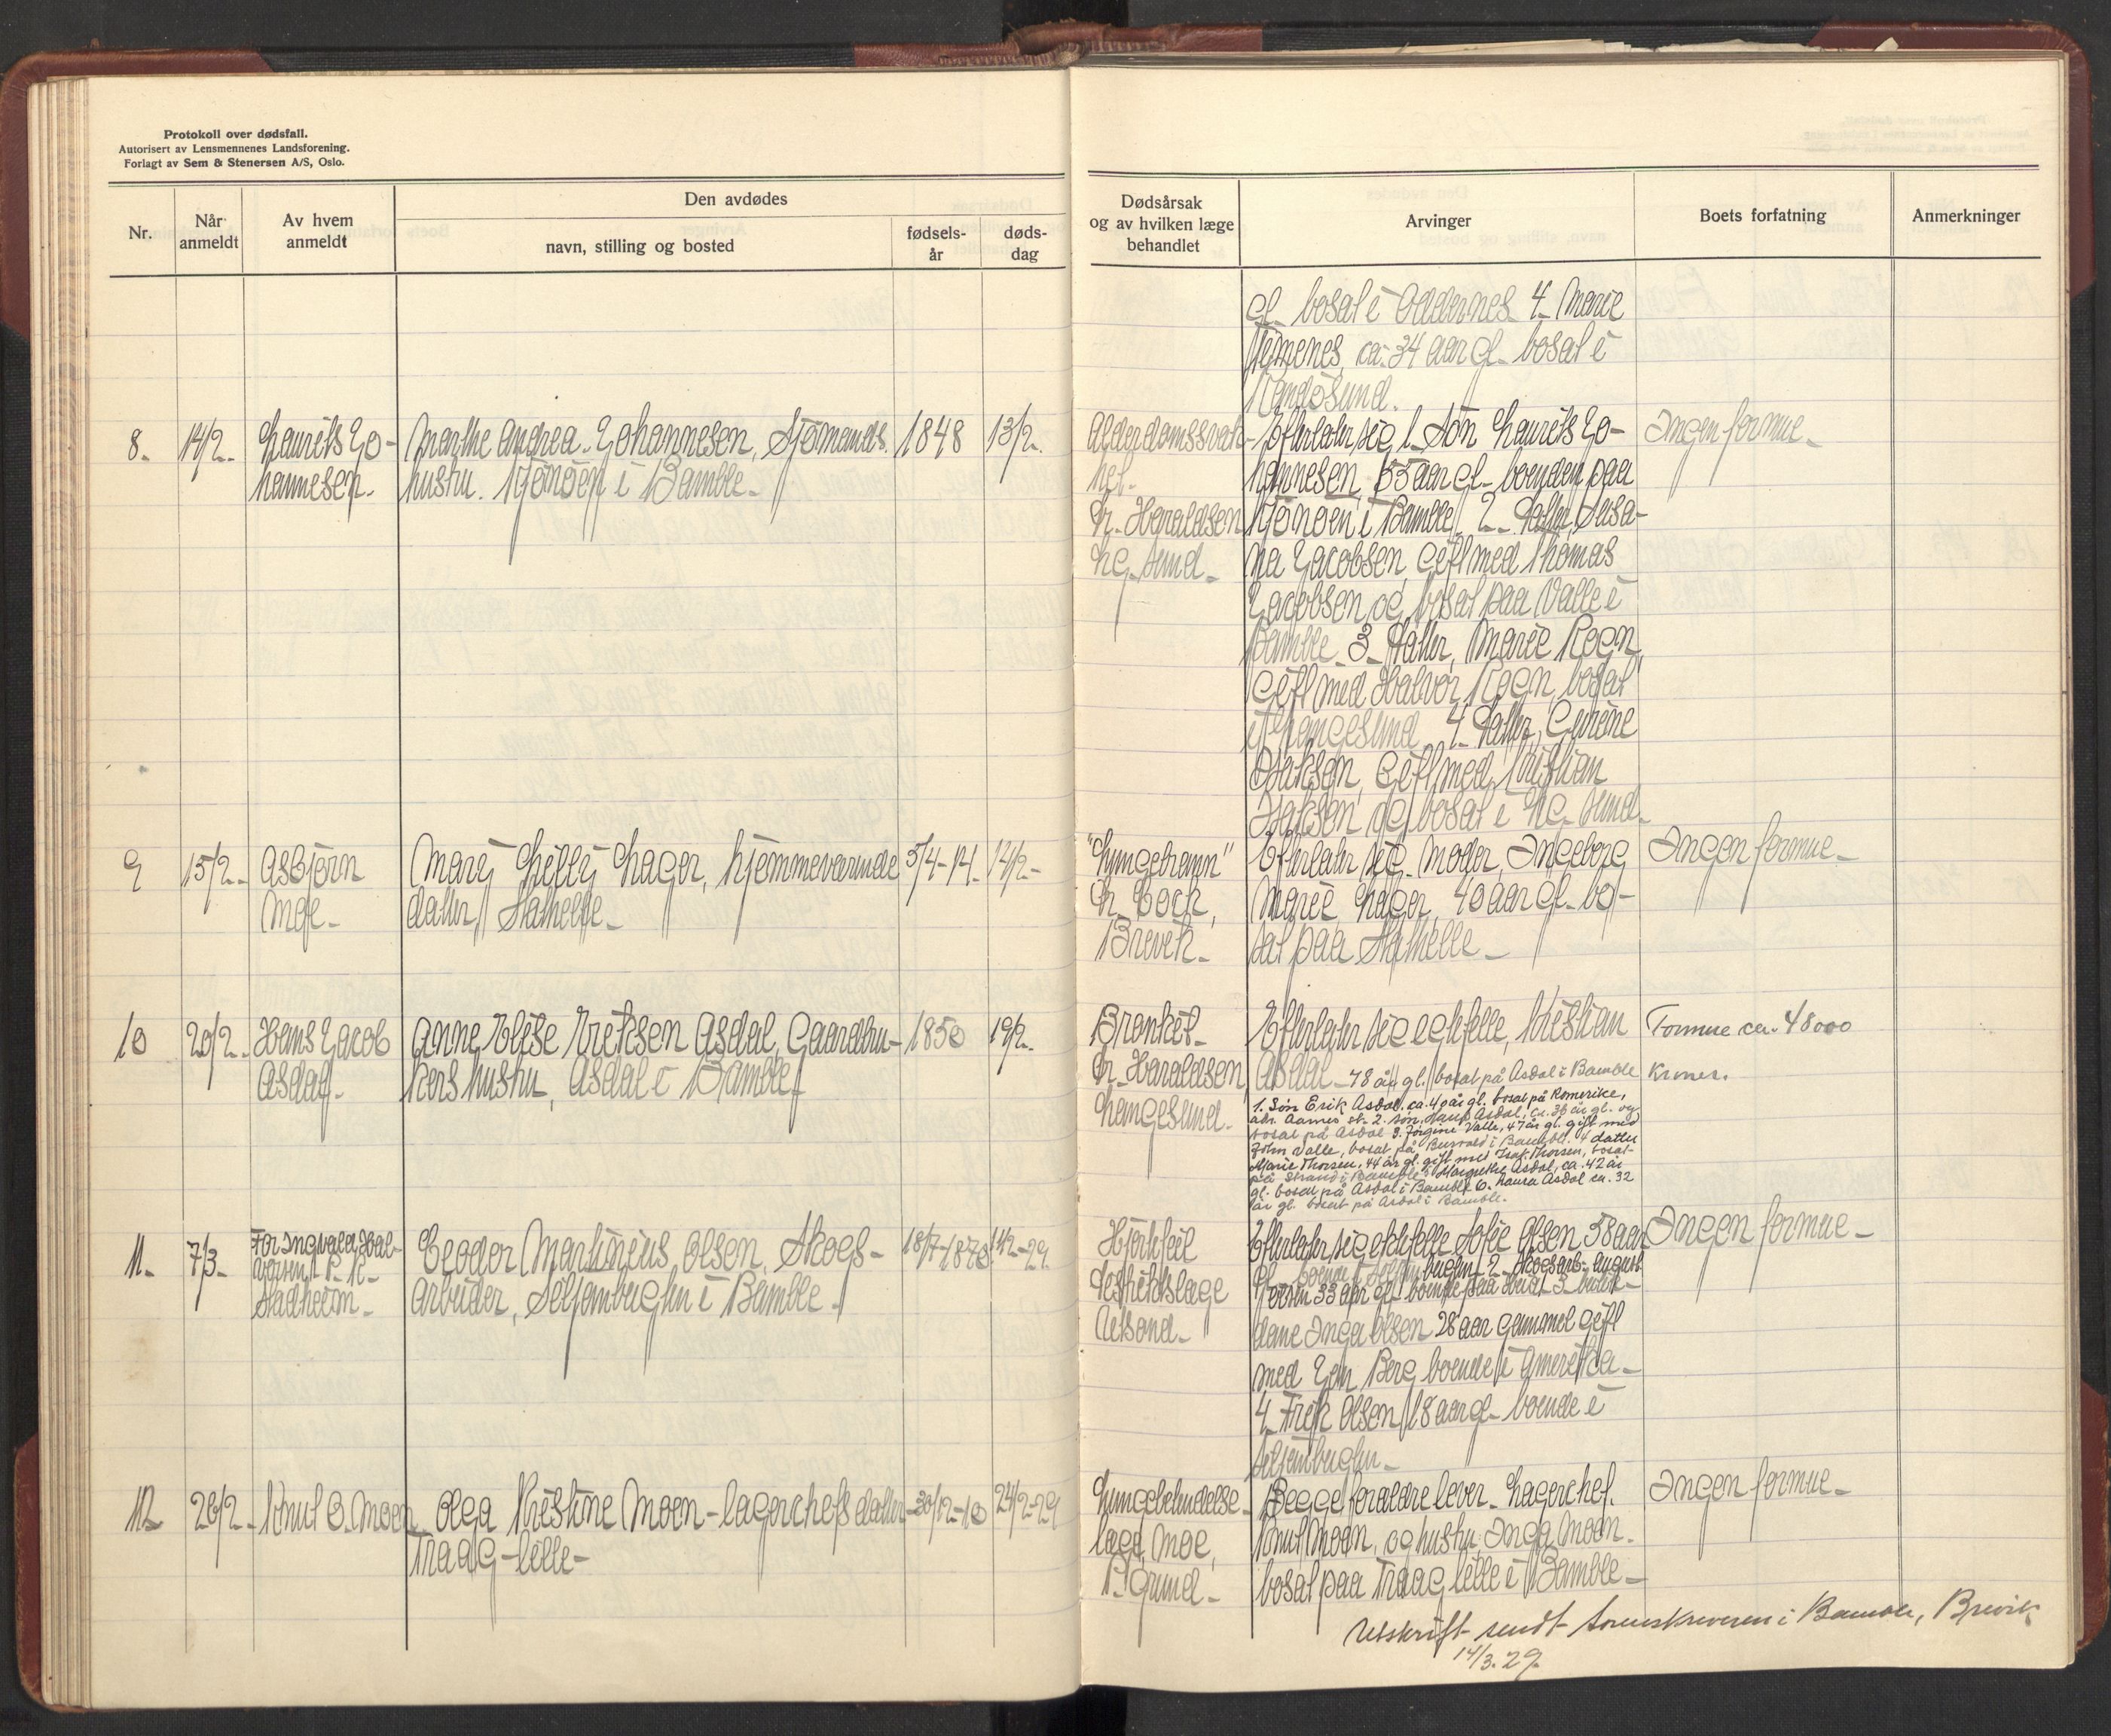 Protokoll over dødsfall.
Autorisert av Lensmennenes Landsforening.
Forlagt av Sem & Stenersen A/S, Oslo.
Nr.
Når anmeldt
Av hvem anmeldt
Den avdødes
navn, stilling og bosted
fødsels-år
døds-dag
Dødsårsak
og av hvilken læge
behandlet
Arvinger
Boets forfatning
Anmerkninger
gl. bosat i Oddernes 4. Marie
ca. 34 aar gl. bosat i
Randøsund.
8. 14/2. Laurits Jo-
hannesen.
Marthe Andrea Johannesen, Sjømands.
hustru. i Bamble.
1848 13/2.
Alderdomssvak-
het.
Dr. Haraldsen
Lg. sund.
Efterlater sig 1. Søn Laurits Jo-
hannesen, 55 aar gl. boende paa
i Bamble. 2. datter,
na Jacobsen, gift med Thomas
Jacobsen og bosat paa Valle i
Bamble. 3. datter, Marie Rogn,
gift med Halvor Rogn, bosat
i Langesund. 4. datter, Gurine
Isaksen, gift med Kristian
Isaksen og bosat i Lg. sund.
Ingen formue.
9 15/2. Asbjørn
Moe.
Mary Lilly Hager, hjemmeværende
datter, Stathelle.
5/4-14. 14/2.
"Lungebrann"
Dr. Bock,
Brevik.
Efterlater sig. Moder, Ingeborg
Marie Hager, 40 aar gl. bo-
sat paa Stathelle.
Ingen formue.
10 20/2. Hans Jacob
Asdal.
Anne Elise Eriksen Asdal, Gaardbru-
kers hustru, Asdal i Bamble.
1850 19/2.
Bronkit.
Dr. Haraldsen,
Langesund.
Efterlater sig egtefelle, Kristian
Asdal. 78 år gl. bosat på Asdal i Bamble
1. Søn Erik Asdal. ca. 40 år gl. bosat på Romerike,
adr. Aarnes st. 2. søn, Hans Asdal, ca. 36 år gl. og
bosat på Asdal 3. Jørgine Valle, 47 år gl. gift med
John Valle, bosat på i Bamble. 4 datter
Marie Thorsen, 44 år gl. gift med Isak Thorsen, bosat
på Strand i Bamble 5. Margrethe Asdal, ca. 42 år
gl. bosat på Asdal i Bamble 6. Laura Asdal ca. 32
år gl. bosat på Asdal i Bamble.
Formue ca. 48000
kroner.
11. 7/3. For Ingvald Hal-
vorsen P. K.
Stadheim.
Teodor Martinius Olsen, Skogs-
arbeider, i Bamble.
18/7-1870. 14/2-29.
Hjertefeil
Distriktslæge
Aaksand.
Efterlater sig ektefelle Sofie Olsen 58 aar
gl. boende i 2. Skogsarb. August
Olsen 33 aar gl. boende paa 3.
Inga Olsen 28 aar gammel gift
med Berg boende i Amerika.
4. Olsen 18 aar gl. boende i
Ingen formue.
12 26/2. Knut O. Moen
Olga Kristine Moen - lagerchefs datter
Traag - lille.
30/12-10 24/2-29
Lungebetendelse.
læge Moe,
P. grund.
Begge foreldre lever. Lagerchef.
Knut Moen, og hustru Inga Moen.
bosat paa Traag lille i Bamble.
Ingen formue.
Utskrift sendt Sorenskriveren i Bamble, Brevik
14/3. 29.